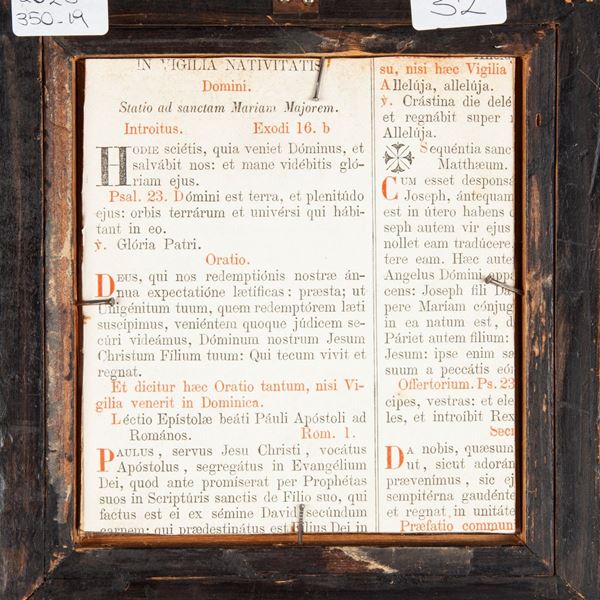 350-19
52
IN VIGILIA NATIVITATIS
Domini.
Statio ad sanctam Mariam Majorem.
Introitus. Exodi 16. b
HODIE sciétis, quia veniet Dóminus, et
salvábit nos: et mane vidébitis gló-
riam ejus.
Psal. 23. Dómini est terra, et plenitúdo
ejus: orbis terrárum et univérsi qui hábi-
tant in eo.
℣. Glória Patri.
Oratio.
DEUS, qui nos redemptiónis nostræ án-
nua expectatióne lætíficas: præsta; ut
Unigénitum tuum, quem redemptórem læti
suscípimus, veniéntem quoque júdicem se-
cúri videámus, Dóminum nostrum Jesum
Christum Filium tuum: Qui tecum vivit et
regnat.
Et dicitur hæc Oratio tantum, nisi Vi-
gilia venerit in Dominica.
Léctio Epístolæ beáti Páuli Apóstoli ad
Romános. Rom. 1.
PAULUS, servus Jesu Christi, vocátus
Apóstolus, segregátus in Evangélium
Dei, quod ante promíserat per Prophétas
suos in Scriptúris sanctis de Fílio suo, qui
factus est ei ex sémine David secúndum
carnem: qui prædestinátus est Fílius Dei in
su, nisi hæc Vigilia
Allelúja, allelúja.
℣. Crástina die delé
et regnábit super
Allelúja.
Sequéntia sanc
Matthæum.
CUM esset desponsá
Joseph, ántequam
est in útero habens d
seph autem vir ejus
nollet eam tradúcere,
tere eam. Hæc auter
Angelus Dómini appá
cens: Joseph fili Da
pere Mariam cónjug
in ea natum est, d
Páriet autem filium:
Jesum: ipse enim sa
suum a peccátis eó
Offertorium. Ps. 23
cipes, vestras: et ele
les, et introíbit Rex
Secr
DA nobis, quæsum
ut, sicut adorán
prævenímus, sic ej
sempitérna gaudénte
et regnat in unitáte
Præfatio commun